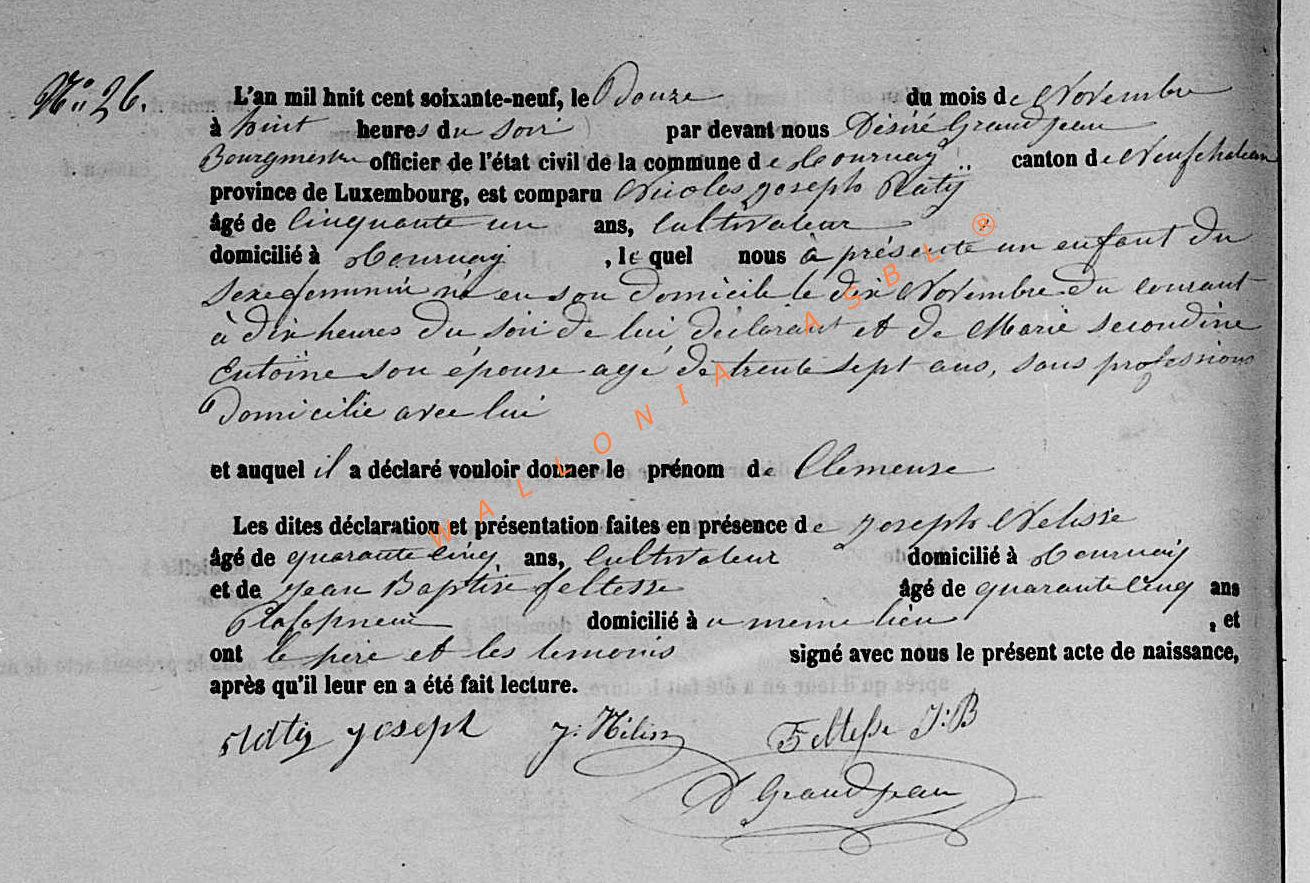 N° 26.
L'an mil huit cent soixante-neuf, le Douze du mois de Novembre
à huit heures du soir par devant nous Désiré Grandjean
Bourgmestre officier de l'état civil de la commune de Tournay canton de Neufchateau
province de Luxembourg, est comparu Nicolas Joseph
âgé de cinquante un ans, cultivateur
domicilié à Tournay, le quel nous à présenté un enfant du
sexe feminin né en son domicile le dix Novembre du courant
à dix heures du soir de lui déclarant et de Marie Secondine
Entoine son épouse agé de trente sept ans, sans profession
Domicilie avec lui
et auquel il a déclaré vouloir donner le prénom de Clemense
Les dites déclaration et présentation faites en présence de Joseph
âgé de quarante cinq ans, cultivateur domicilié à Tournay
et de Jean Baptise feltesse âgé de quarante cinq ans
domicilié à u meme lieu, et
ont le père et les temoins signé avec nous le présent acte de naissance,
après qu'il leur en a été fait lecture.
Joseph J: Feltesse J:B
D Grandjean
WALLONIA ASBL ®